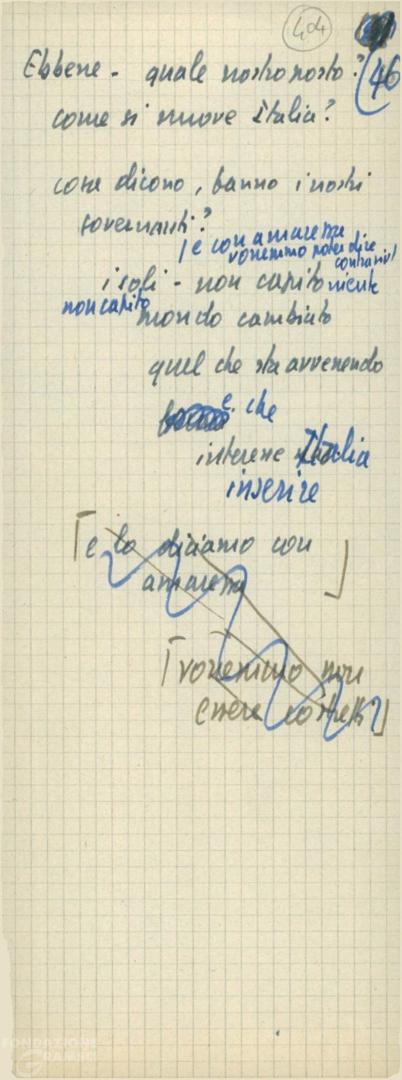 404
46
Ebbene - quale nostro posto?
come si muove Italia?
cosa dicono, fanno i nostri
governanti?
/ e con amarezza
vorremmo poter dire
contrario /
i soli - non capito niente
non capito
mondo cambiato
quel che sta avvenendo
e che
interesse Italia
inserire
e lo diciamo con
amarezza
vorremmo non
essere costretti
FONDAZIONE
GRAMSCI